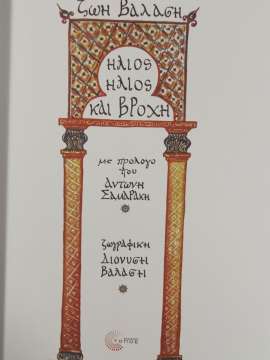 ζωη Βαλαση
ηλιος
ηλιος
και βροχη
με προλογο
του
Αντωνη
Σαμαρακη
ζωγραφικη
Διονυση
Βαλαση